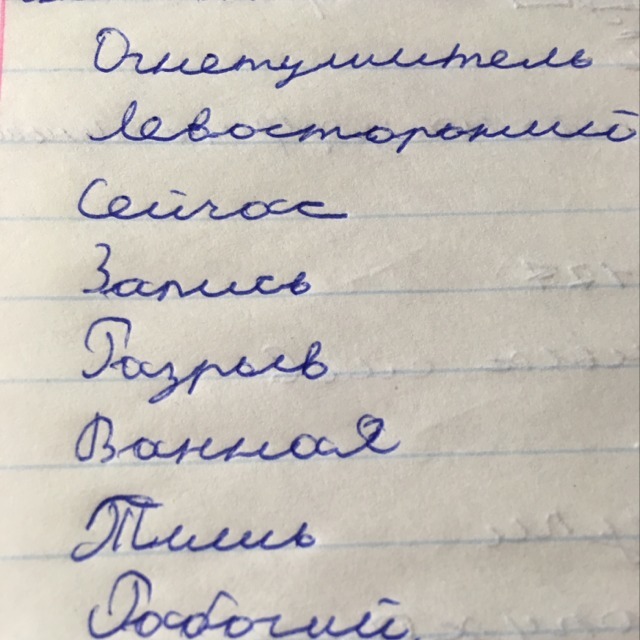 Огнетушитель
Левосторонний
Сейчас
Запись
Разрыв
Ванная
Тишь
Рабочий